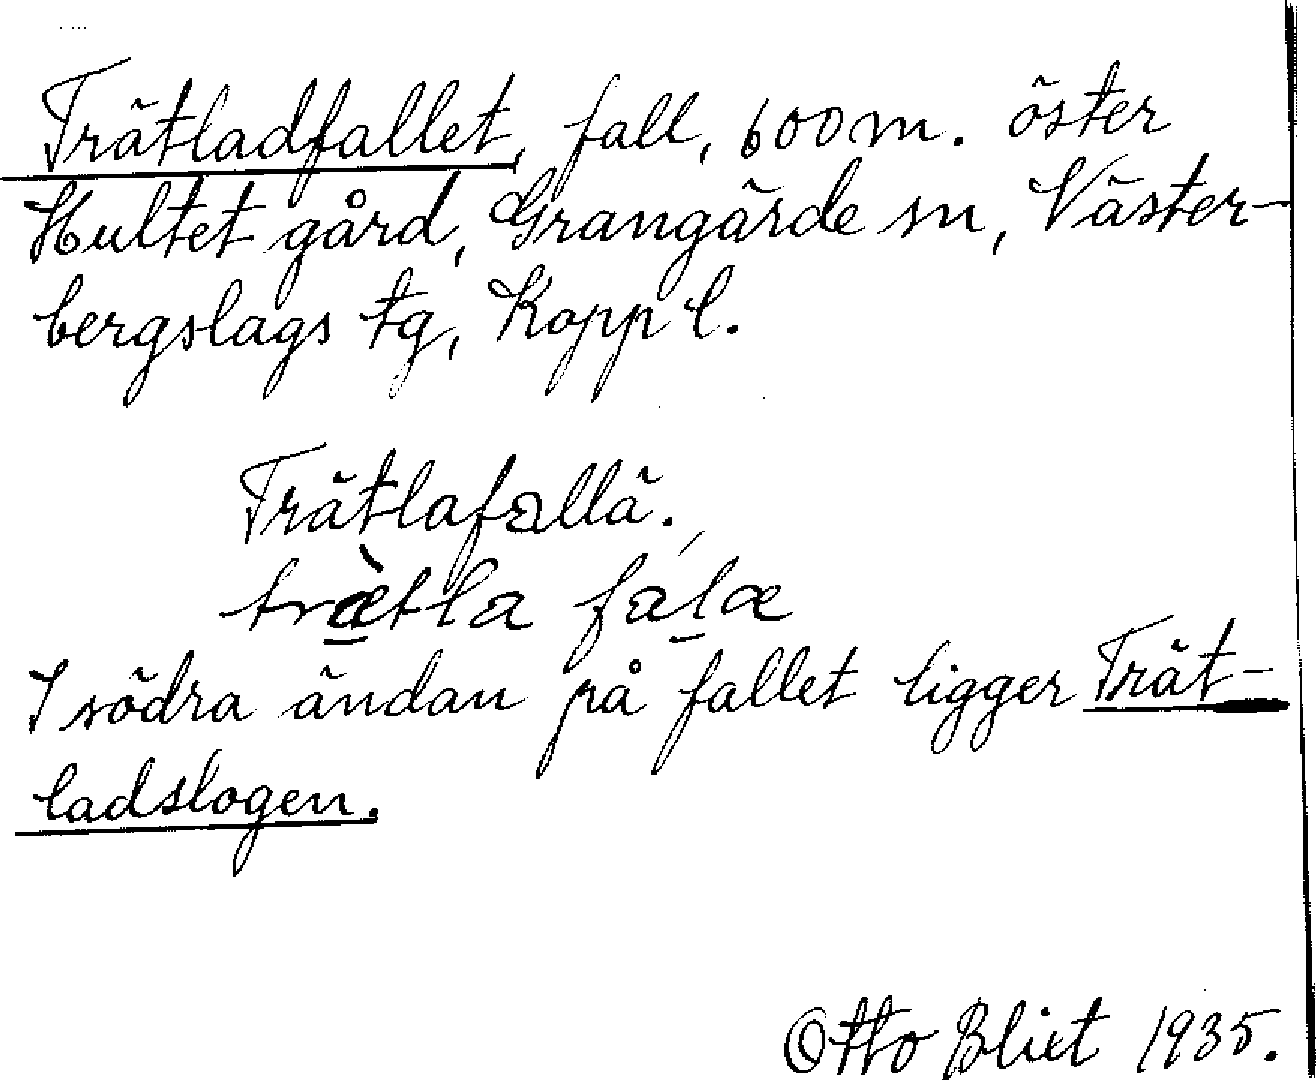 Trätladfallet, fall, 600 m. öster
Hultet gård, Grangärde sn, Väster-
bergslags tg, Kopp l.
Trätlafallä.
træ̀tla fáḷæ
I södra ändan på fallet ligger Trät-
ladslogen.
Otto Blixt 1935.